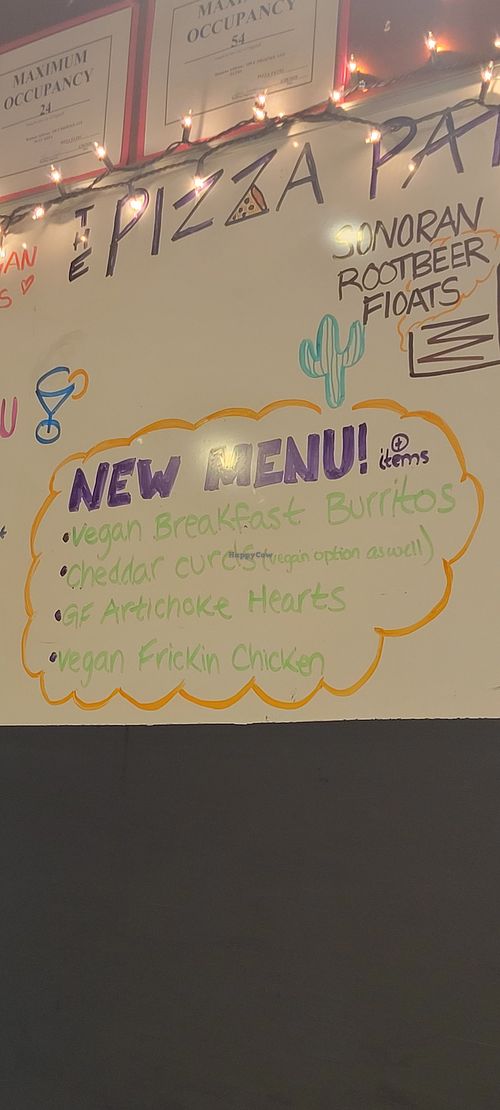 MAXIMUM
OCCUPANCY
24
MAXIMUM
OCCUPANCY
54
THE PIZZA PA
SONORAN
ROOTBEER
FlOATS
NEW MENU! items
• vegan Breakfast Burritos
• cheddar curds (vegain option as well)
• GF Artichoke Hearts
• vegan Frickin Chicken
HappyCow